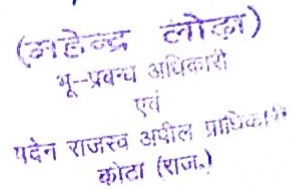 (महेन्द्र लोढ़ा)
भू--प्रबन्ध अधिकारी
एवं
पदेन राजस्व अपील प्राधिकारी
कोटा (राज.)